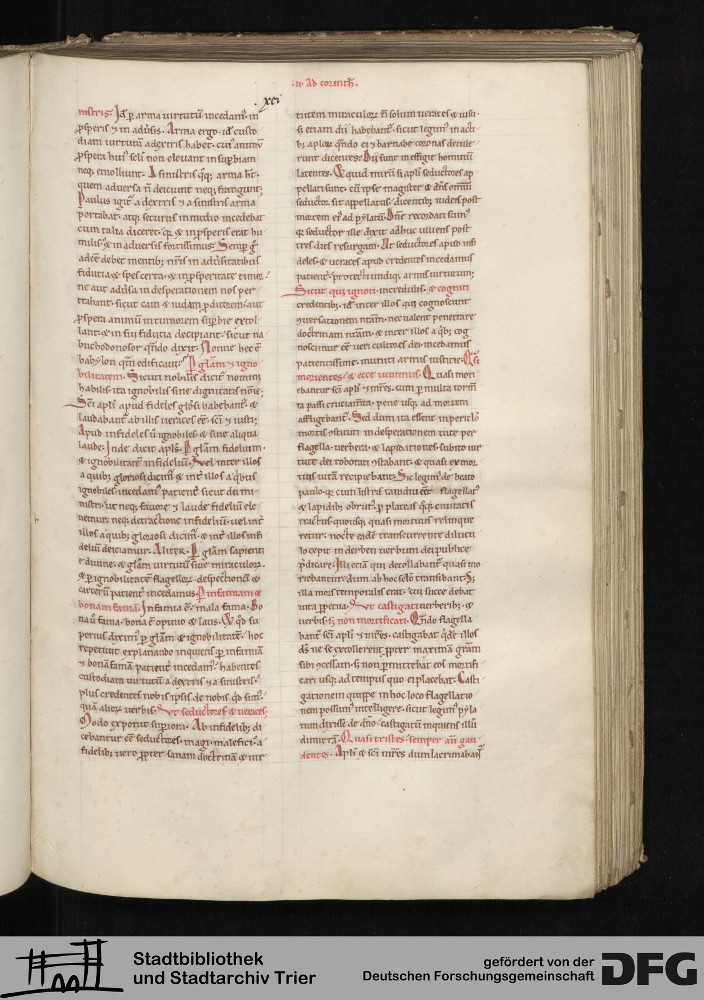 .ii. Ad corinth.
xci
nistris. Id ē ꝑ arma uirtutū incedam̄. in
ꝓsperis ⁊ in adūsis. Arma ergo. id ē custo
diam uirtutū a dextris habet. cui᷒ animū
ꝓspera hui᷒ sc̄li non eleuant in suꝑbiam
neq; emolliunt. A sinistris q̄q; arma ht̄.
quem aduersa n̄ deiciunt neq; frangunt.
Paulus igit᷑ a dextris ⁊ a sinistris arma
portabat. atq; securus in medio incedebat
cum talia diceret.
milis ⁊ in aduersis fortissimus. Semꝑ g̊
adēē debet mentib; nr̄is in aduersitatibus
fiducia ⁊ spes certa. ⁊ in ꝓsperitate timor.
ne aut adūsa in desperationem nos per
trahant. sicut cain ⁊ iudam ꝓditorem. aut
ꝓspera animū in tumorem suꝑbie extol
lant. ⁊ in sui fiducia decipiant. sicut na
buchodonosor qn̄do dixit. Nonne hec ē
babylon qm̄ edificaui. P̱ glam̄ ⁊ igno
bilitatem. Sicuti nobilis dicit᷑ nomini
habilis. ita ignobilis sine dignitatis noīe.
Sc̄i apl̄i apud fideles glosi habebant᷑. ⁊
laudabant᷑ ab illis ueraces ēē. sc̄i ⁊ iusti.
Apud infideles ū ignobiles. ⁊ sine aliqua
laude. Inde dicit apl̄s. P̱ glam̄ fidelium.
⁊ ignobilitatē infideliū. Vel inter illos
a quib; gloriosi dicim̄. ⁊ int̄ illos a q̄bus
ignobiles incedam̄ patient᷑ sicut dei mi
nistri. ut neq; fauore ⁊ laude fideliū ele
uemur. neq; detractione infideliū. uel int̄
illos a quib; gloriosi dicim̄. ⁊ int̄ illos infi
deliū deiciamur. Aliter. P̱ glam̄ sapienti
e diuine. ⁊ glam̄ uirtutū siue miraculorū.
⁊ ꝑ ignobilitatē flagellorū. despectionū ⁊
carcerū patient᷑ incedamus. P̱ infamiam ⁊
bonam famā. Infamia ē mala fama. Bo
na ū fama. bona ē opinio ⁊ laus. Et qd̄ su
perius diximꝰ ꝑ glam̄ ⁊ ignobilitatē. hoc
repetiuit explanando inquiens. ꝑ infamiā
⁊ bonā famā patient᷑ incedam̄. habentes
custodiam uirtutū a dextris ⁊ a sinistris.
plus credentes nobis ipsis de nobis qd̄ sum᷒.
quā alior̄ uerbis. Vt seductores ⁊ ueraces.
Modo exponit suꝑiora. Ab infidelib; di
cebantur ēē seductores. magi. malefici. a
fidelib; uero ꝓpter sanam doctrinā ⁊ uir
tutem miraculor̄ n̄ solum ueraces ⁊ iusti.
s; etiam dii habebant᷑. sicut legim᷒ in acti
b; aplor̄. qn̄do ei ⁊ barnabe coronas detule
runt dicentes. Dii sunt in effigie hominū
latentes. Et quid mirū si apli seductores ap
pellati sunt. cū ipse magister ⁊ dn̄s omniū
seductor sit appellatus. dicentib; iudeis post
mortem ei᷒ ad pylatū. Dn̄e recordati sum᷒
q̄ seductor ille dixit adhuc uiuens. post
tres dies resurgam. At seductores apud infi
deles. ⁊ ueraces apud credentes incedamus
patient᷑. protecti undiq; armis uirtutum.
Sicut qui ignoti. incredulis. ⁊ cogniti
credentib;. id ē inter illos qui cognoscunt
ꝯuersationem nr̄am. nec ualent penetrare
doctrinam nr̄am. ⁊ inter illos a q̄b; cog
noscimur ēē ueri cultores dei. incedamus
patientissime. muniti armis iusticie. Q̄si
morientes. ⁊ ecce uiuimus. Quasi mori
ebantur sc̄i apl̄i ⁊ m̄res. cum ꝑ multa torm̄
ta passi cruciam̄ta. pene usq; ad mortem
affligebant᷑. Sed dum ita essent in periclo
mortis ꝯstituti in desperationem uite per
flagella. uerbera. ⁊ lapidationes. subito uir
tute dei roborati ꝯstabant. ⁊ quasi ex mor
tuis uitā recipiebant. Sic legim᷒ de beato
paulo. q̄ cum listris tamdiu ēēt flagellat᷒
⁊ lapidib; obrut᷒. ꝑ plateas q̄q; ciuitatis
tractus quousq; quasi mortuus relinque
retur. nocte eadē transcurrente. dilucu
lo cepit in derben uerbum dei publice
p̄dicare. Illi etiā qui decollabant᷑ quasi mo
riebantur. dum ab hoc sc̄lo transibant. S;
illa mors temporalis erat. cui succedebat
uita ꝑpetua. Vt castigati uerberib;. ⁊
uerbis. s; non mortificati. Qn̄do flagella
bant᷑ sc̄i apl̄i ⁊ m̄res. castigabat q̄dē illos
ds̄. ne se extollerent ꝓpter maximā gr̄am
sibi ꝯcessam. s; non ꝑmittebat eos mortifi
cari usq; ad tempus quo ei placebat. Casti
gationem quippe in hoc loco flagellatio
nem possum᷒ intelligere. sicut legim᷒ pyla
tum dixisse de dn̄o. castigatū inquiens illū
dimittā. Quasi tristes. semper aut̄ gau
dentes. Apl̄i ⁊ sc̄i m̄res dum lacrimabant᷑
Stadtbibliothek
und Stadtarchiv Trier
gefördert von der
Deutschen Forschungsgemeinschaft
DFG